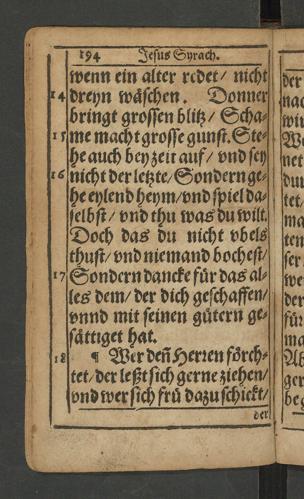 194 Jesus Syrach.
wenn ein alter redet/ nicht
14 dreyn wäschen. Donner
bringt grossen blitz/ Scha-
15 me macht grosse gunst. Ste-
he auch bey zeit auf/ vnd sey
16 nicht der letzte/ Sondern ge-
he eylend heym/ vnd spiel da-
selbst/ vnd thu was du wilt.
Doch das du nicht vbels
thust/ vnd niemand bochest/
17 Sondern dancke für das al-
les dem/ der dich geschaffen/
vnnd mit seinen gütern ge-
sättiget hat.
18 ¶ Wer deñ Herren förch-
tet/ der leßt sich gerne ziehen/
vnd wer sich frü dazu schickt/
der